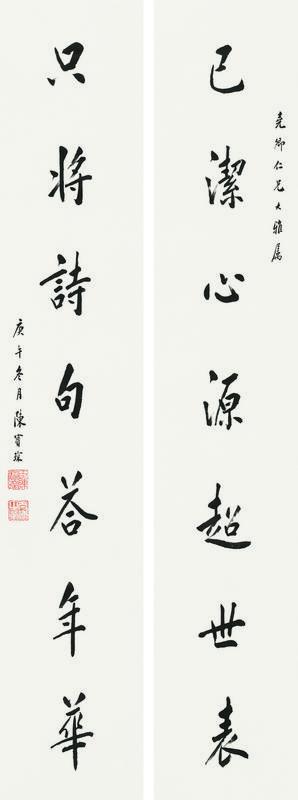 堯卿仁兄大雅属
已潔心源超世表
只將詩句答年華
庚午冬月陳寶琛